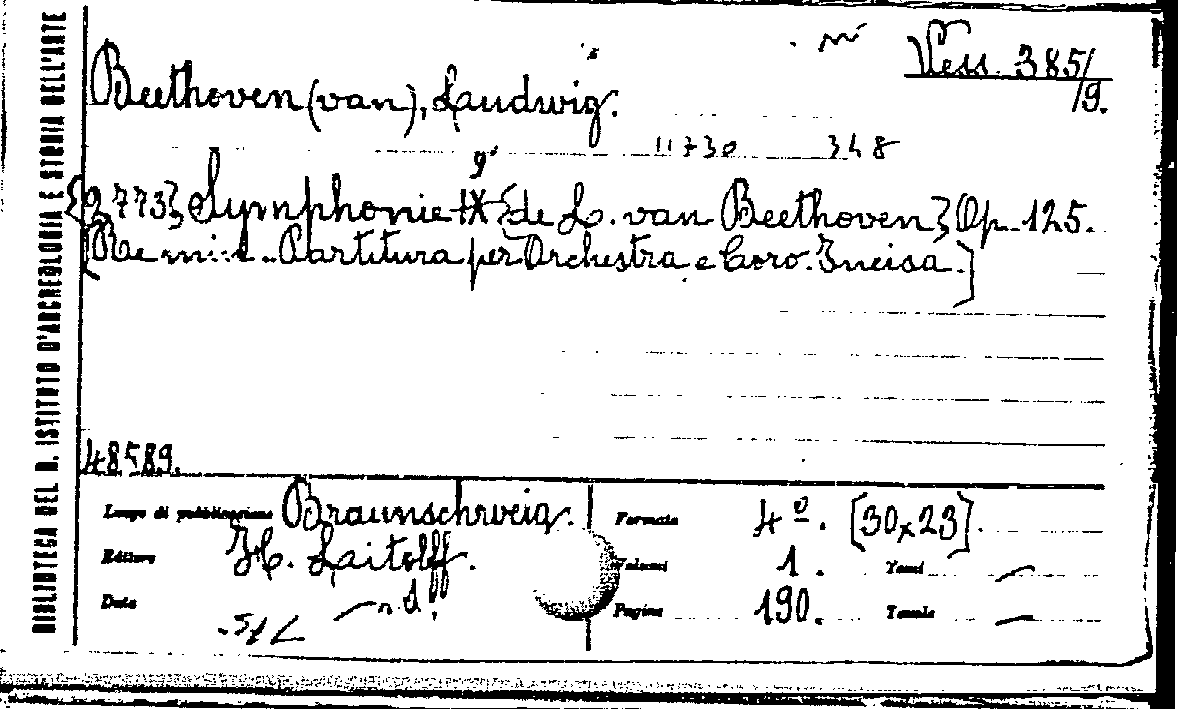 BIBLIOTECA DEL R. ISTITUTO D'ARCHEOLOGIA E STORIA DELL'ARTE
Vess. 385/
/9.
Beethoven (van), Laudwig.
11730 348
9ª
{2,773} Symphonie IX {de L. van Beethoven} Op. 125.
[Re min. Partitura per Orchestra e Coro. Incisa.]
48589.
Luogo di pubblicazione Braunschweig. Formato 4º. [30x23].
Editore H. Laitolff. Volumi 1. Tomi —
Data — n. d. Pagine 190. Tavole —